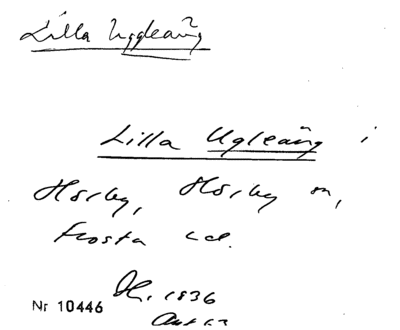 Lilla Uggleäng
Lilla Ugleäng i
Hörby, Hörby sn,
Frosta hd.
Nr 10446 1936